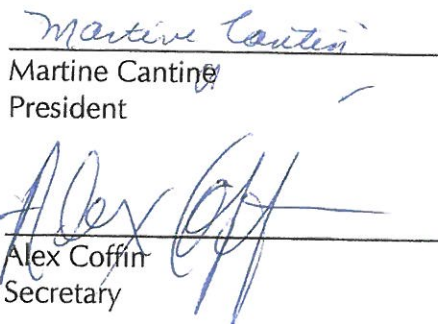 Martine Cantin
Martine Cantine
President
Alex Coff
Alex Coffin
Secretary